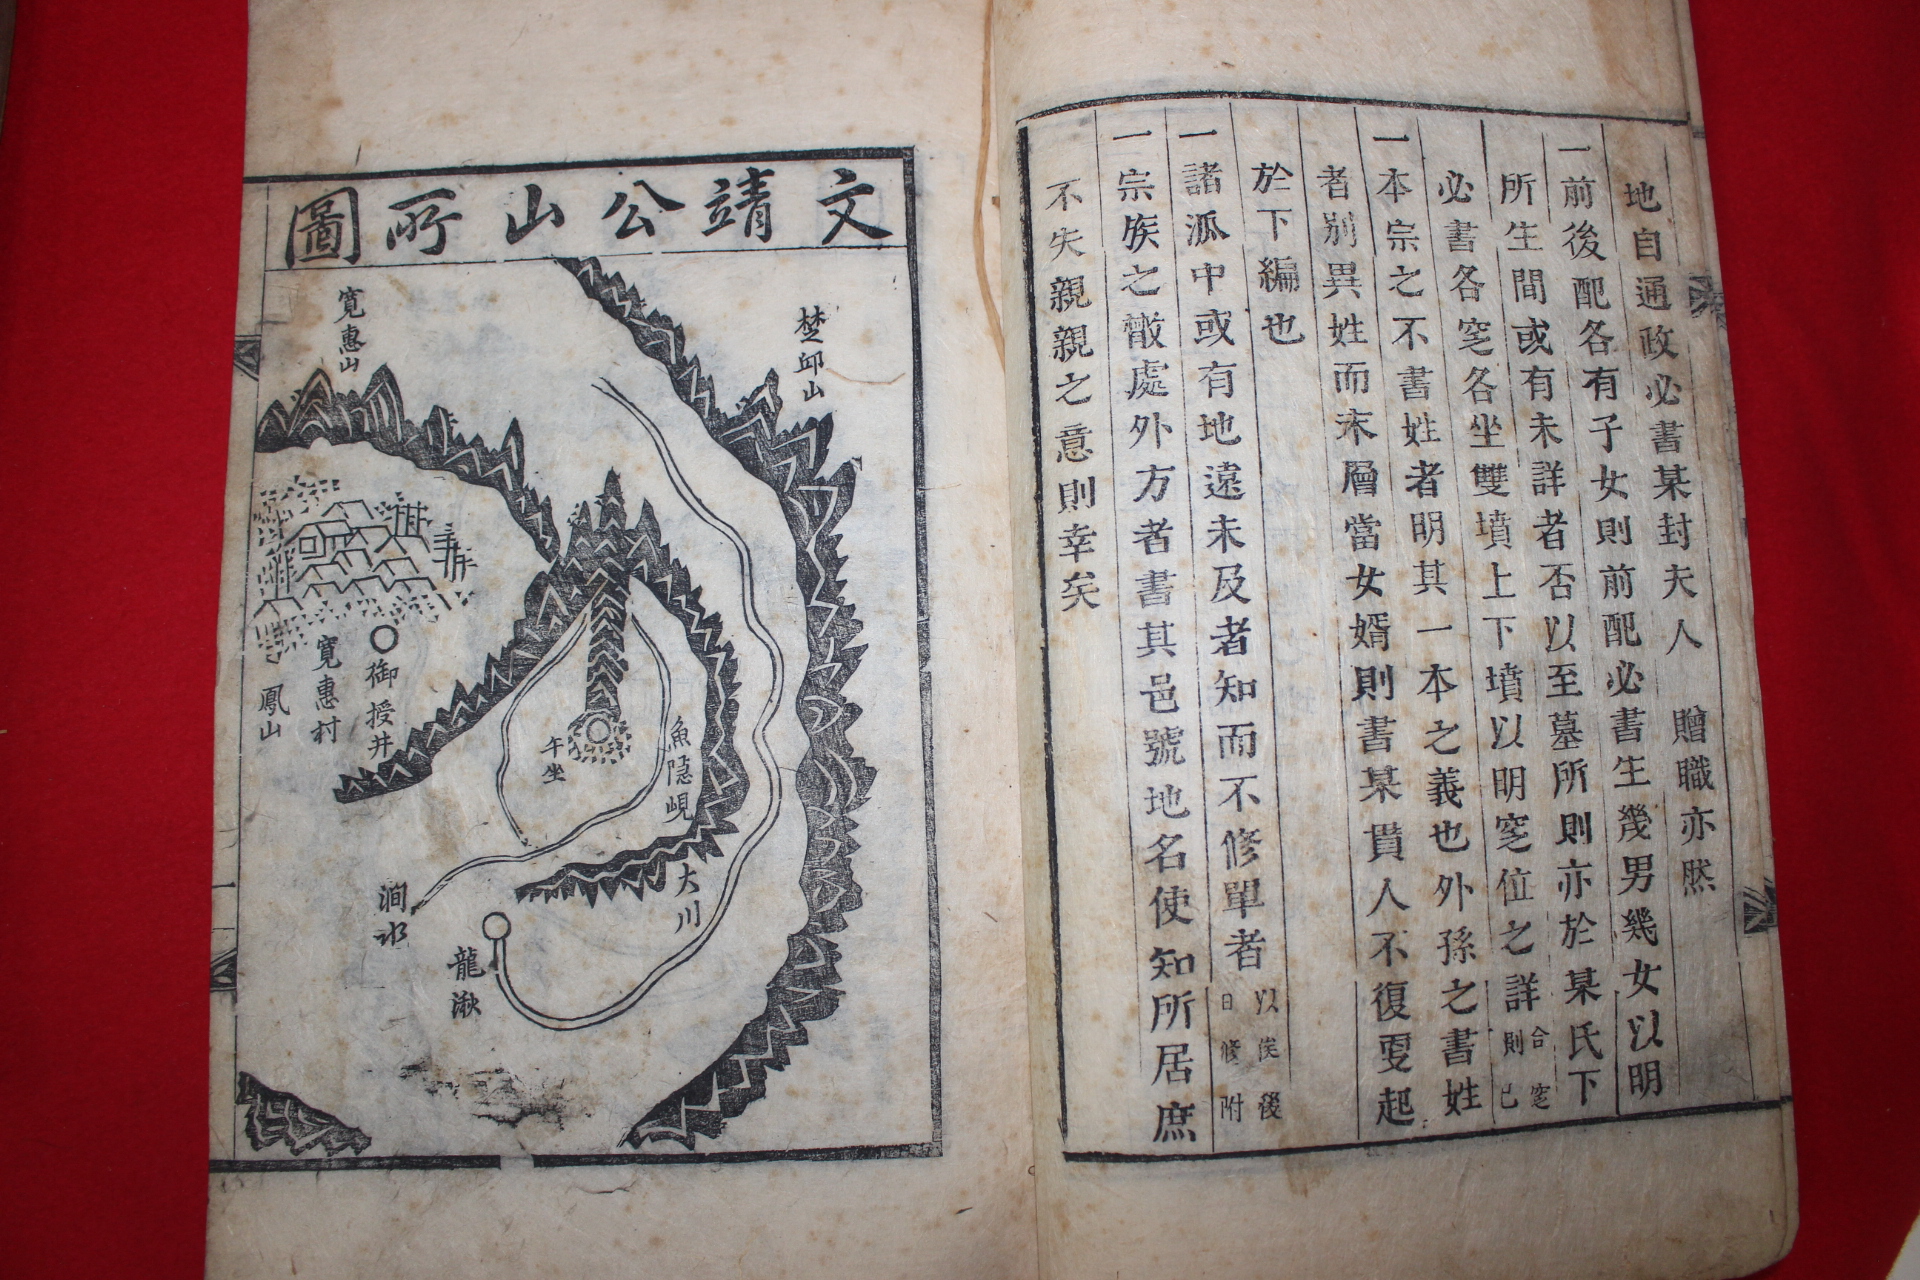 地自通政必書某封夫人 贈職亦然
一前後配各有子女則前配必書生幾男幾女以明
所生間或有未詳者否以至墓所則亦於某氏下
必書各窆各坐雙墳上下墳以明窆位之詳 合窆則已
一本宗之不書姓者明其一本之義也外孫之書姓
者別異姓而末層當女婿則書某貫人不復更起
於下編也
一諸派中或有地遠未及者知而不修單者 以俟後日修附
一宗族之散處外方者書其邑號地名使知所居庶
不失親親之意則幸矣
文靖公山所圖
楚邱山
寬惠山
御授井
寬惠村
鳳山
午坐
魚隱峴
大川
澗水
龍湫